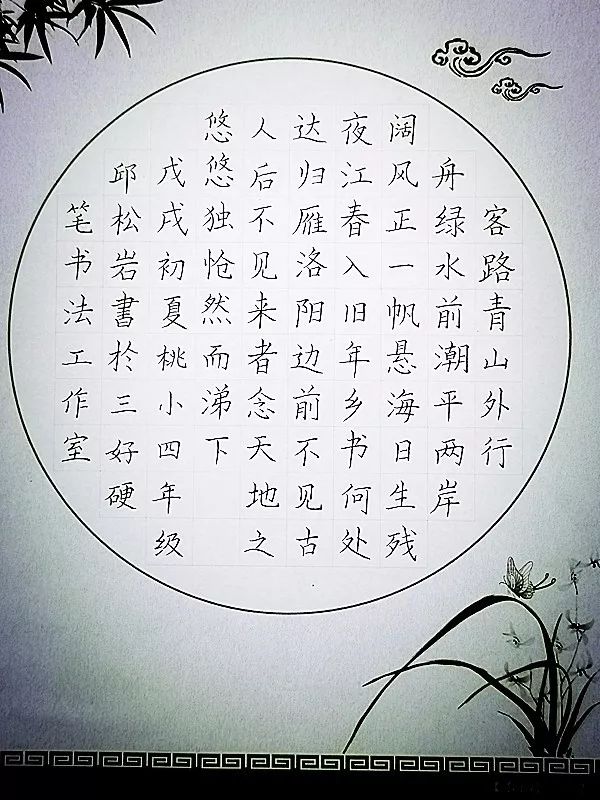 客路青山外行
舟绿水前潮平两岸
阔风正一帆悬海日生残
夜江春入旧年乡书何处
达归雁洛阳边前不见古
人后不见来者念天地之
悠悠独怆然而涕下
戊戌初夏桃小四年级
邱松岩書於三好硬
笔书法工作室